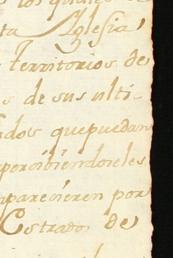 los quales
ta Iglesia
territorios de
s de sus ulti-
ados quepuedan
percibiendoles
mparecieren por
Estrado de